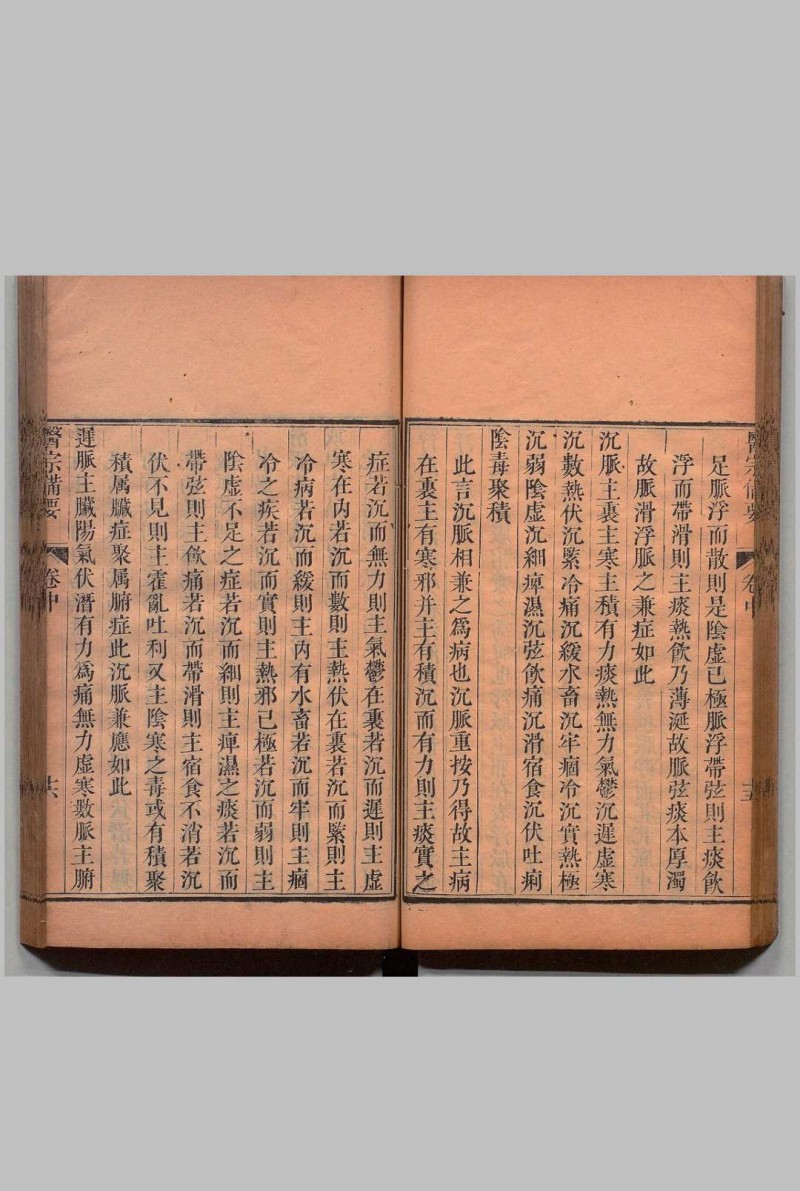 醫宗備要 卷中 十五
足脈浮而散則是陰虛已極脈浮帶弦則主痰飲
浮而帶滑則主痰熱飲乃薄涎故脈弦痰本厚濁
故脈滑浮脈之兼症如此
沉脈主裏主寒主積有力痰熱無力氣鬱沉遲虛寒
沉數熱伏沉緊冷痛沉緩水畜沉牢痼冷沉實熱極
沉弱陰虛沉細痺濕沉弦飲痛沉滑宿食沉伏吐痢
陰毒聚積
此言沉脈相兼之為病也沉脈重按乃得故主病
在裏主有寒邪并主有積沉而有力則主痰實之
症若沉而無力則主氣鬱在裏若沉而遲則主虛
寒在內若沉而數則主熱伏在裏若沉而緊則主
冷病若沉而緩則主內有水畜若沉而牢則主痼
冷之疾若沉而實則主熱邪已極若沉而弱則主
陰虛不足之症若沉而細則主痺濕之痰若沉而
帶弦則主飲痛若沉而帶滑則主宿食不消若沉
伏不見則主霍亂吐利又主陰寒之毒或有積聚
積属臟症聚属腑症此沉脈兼應如此
遲脈主臟陽氣伏潛有力為痛無力虛寒數脈主腑
醫宗備要 卷中 十六